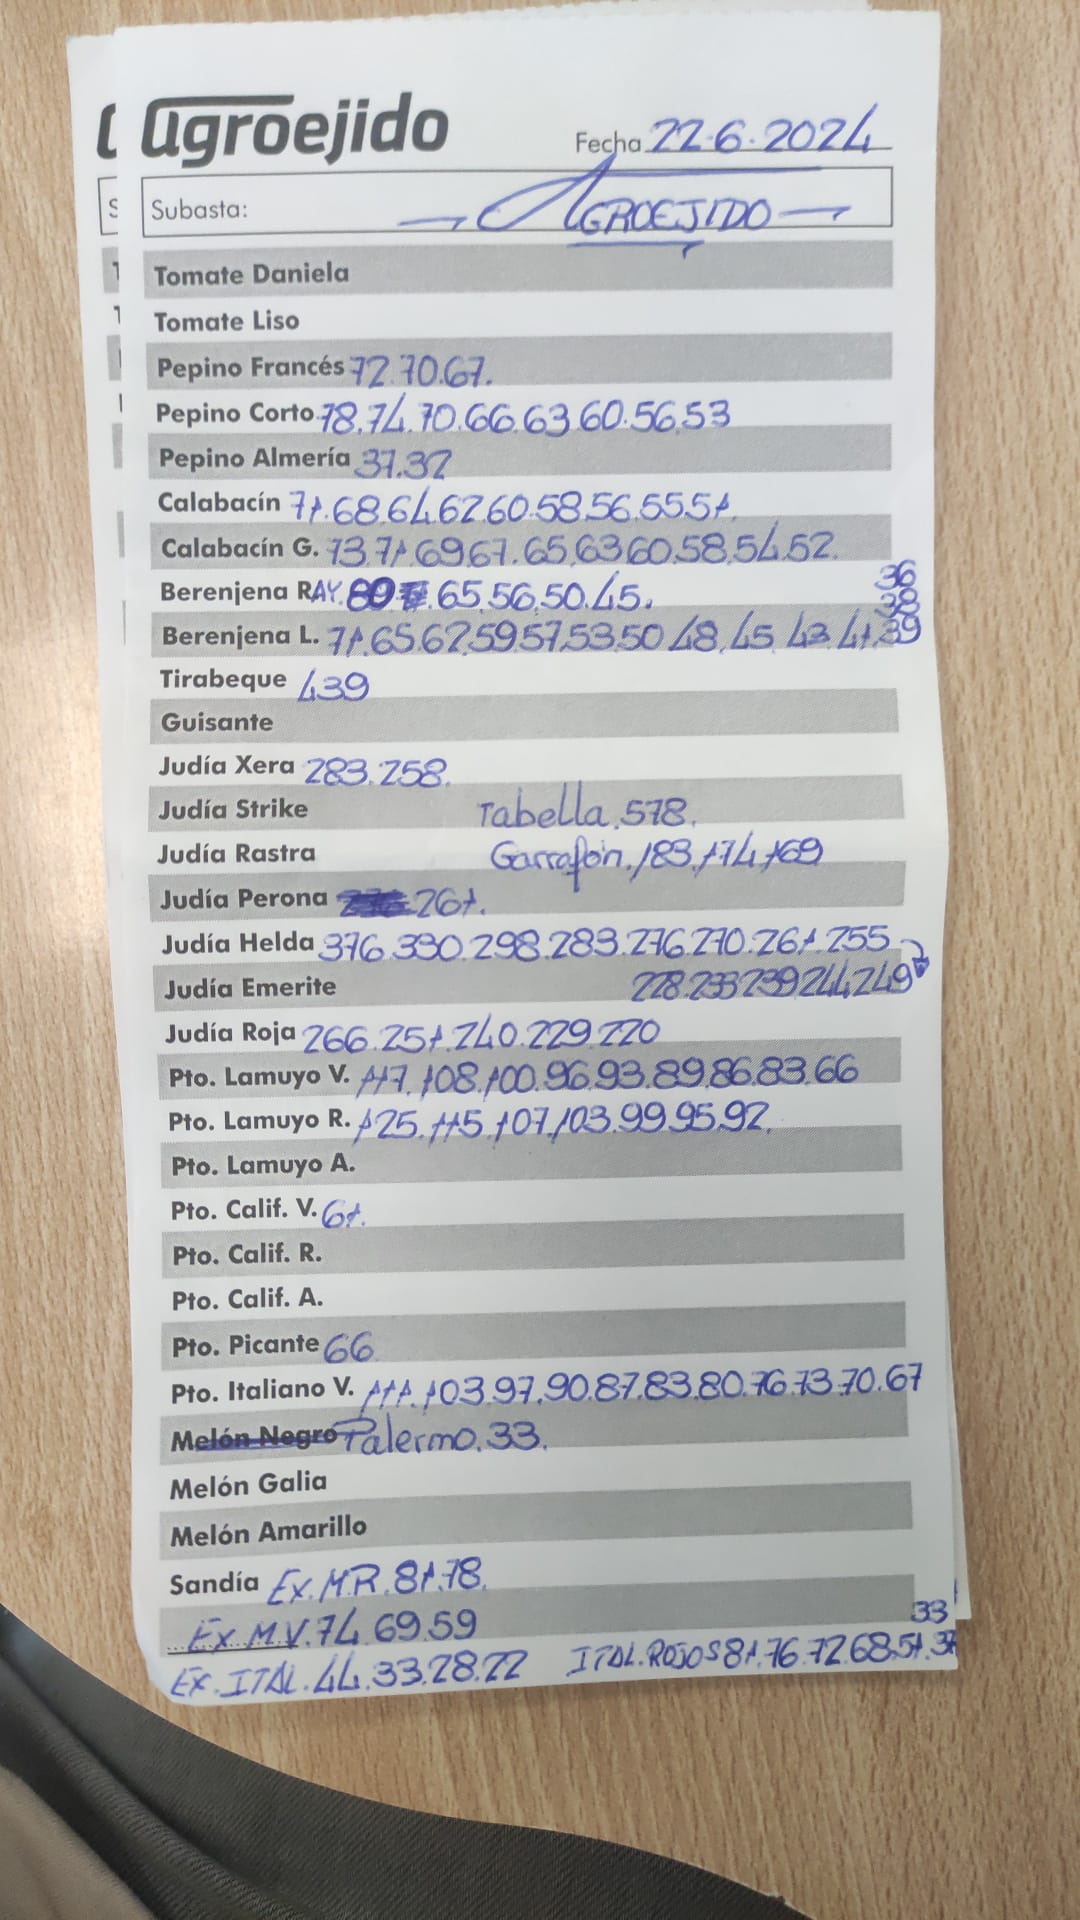 agroejido
Fecha 22.6.2024
Subasta: AGROEJIDO
Tomate Daniela
Tomate Liso
Pepino Francés 72.70.67.
Pepino Corto 78.74.70.66.63.60.56.53
Pepino Almería 37.32
Calabacín 71.68.64.62.60.58.56.55.51.
Calabacín G. 73.71.69.67.65.63.60.58.54.52.
Berenjena RAY. 80. 65.56.50.45.
Berenjena L. 71.65.62.59.57.53.50.48.45.43.41.39
36
Tirabeque 439
Guisante
Judía Xera 283.258.
Judía Strike Tabella.578.
Judía Rastra Garrafón.183.174.169
Judía Perona 261.
Judía Helda 376.330.298.283.276.270.261.255
Judía Emerite 228.233.239.244.249
Judía Roja 266.251.240.229.220
Pto. Lamuyo V. 117.108.100.96.93.89.86.83.66
Pto. Lamuyo R. 125.115.107.103.99.95.92.
Pto. Lamuyo A.
Pto. Calif. V. 61.
Pto. Calif. R.
Pto. Calif. A.
Pto. Picante 66
Pto. Italiano V. 111.103.97.90.87.83.80.76.73.70.67
Melón Negro Palermo.33.
Melón Galia
Melón Amarillo
Sandía Ex.M.R.81.78.
Ex.M.V.74.69.59
33
Ex.ITAL.44.33.28.22 ITAL.ROJOS 81.76.72.68.51.37